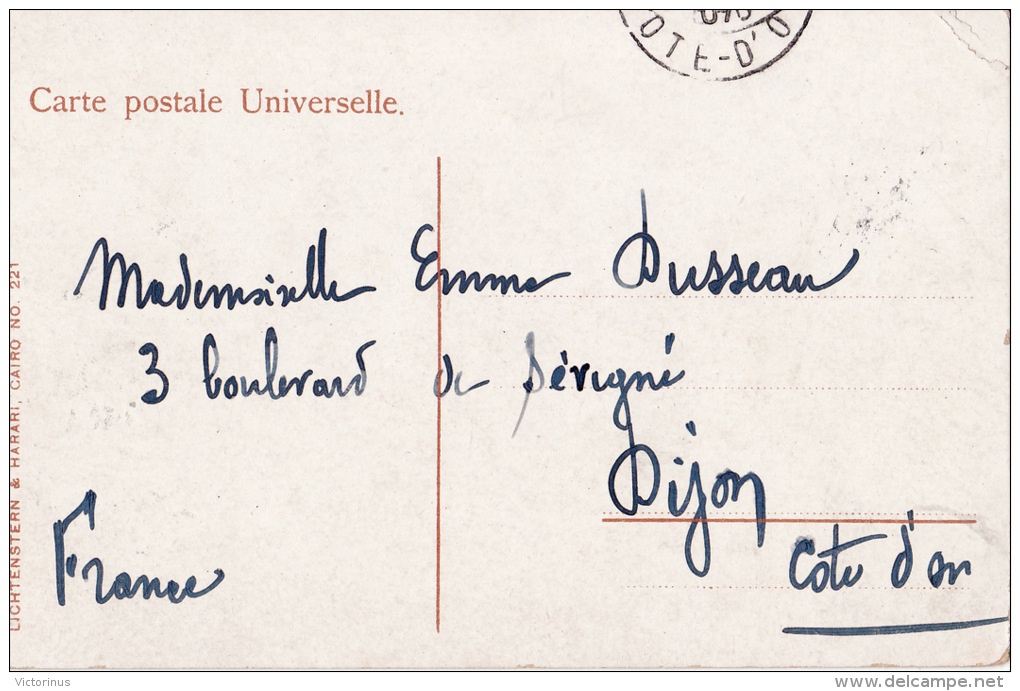 OTE-D'O
Carte postale Universelle.
Mademoiselle Emma Dusseau
3 boulevard de Sévigné
Dijon
Côte d'or
France
LICHTENSTERN & HARARI, CAIRO NO. 221
Victorinus
www.delcampe.net